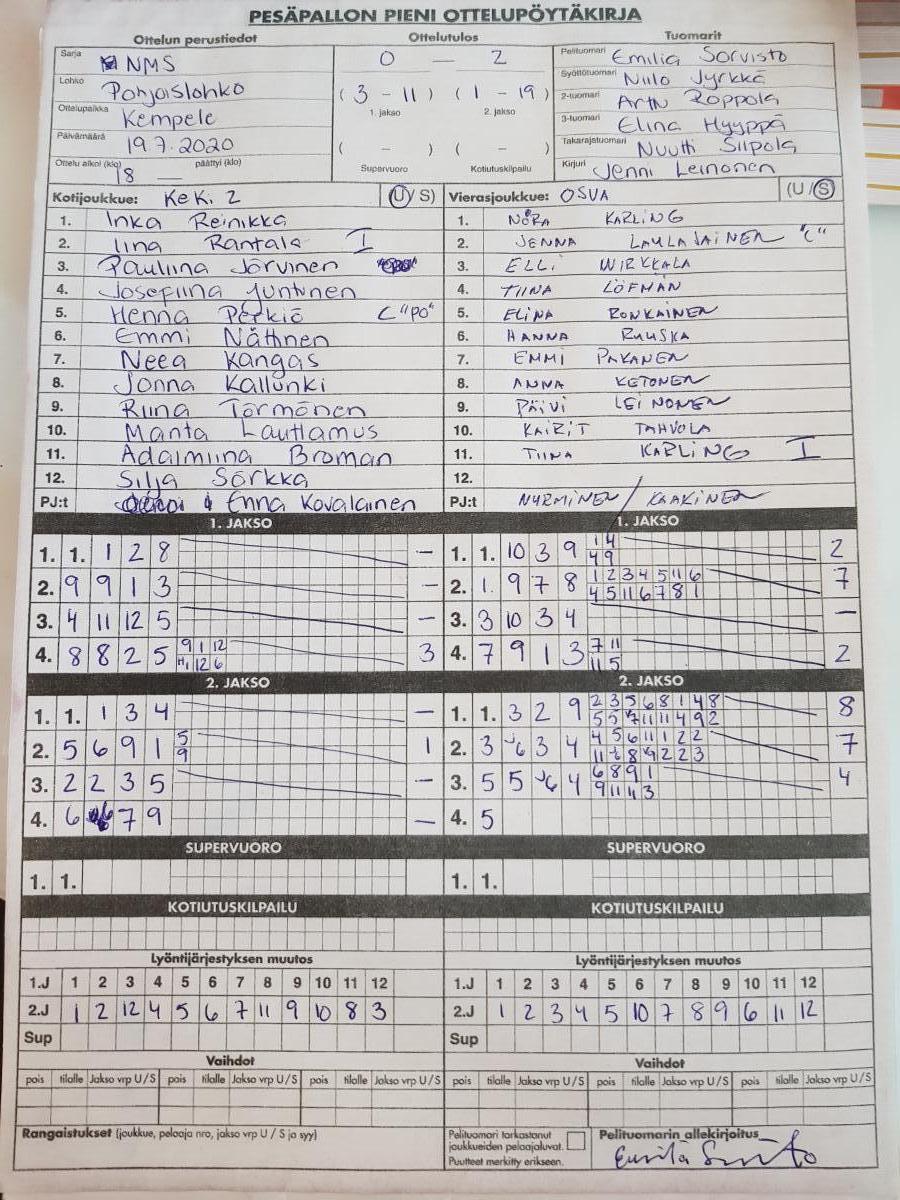 PESÄPALLON PIENI OTTELUPÖYTÄKIRJA
Ottelun perustiedot Ottelutulos Tuomarit
Sarja NMS
Lohko Pohjoislohko
Ottelupaikka Kempele
Päivämäärä 19.7.2020
Ottelu alkoi (klo) 18 — päättyi (klo)
0 — 2
( 3 - 11 ) ( 1 - 19 )
1. jakso 2. jakso
( - ) ( - )
Supervuoro Kotiutuskilpailu
Pelituomari Emilia Sorvisto
Syöttötuomari Niilo Jyrkkä
2-tuomari Arttu Roppola
3-tuomari Elina Hyyppä
Takarajatuomari Nuutti Siipola
Kirjuri Jenni Leinonen
Kotijoukkue: KeKi 2 (U/S)
1. Inka Reinikka
2. Iina Rantala I
3. Pauliina Jörvinen
4. Josefiina Juntunen
5. Henna Perkiö C "PO"
6. Emmi Nättinen
7. Neea Kangas
8. Jonna Kallunki
9. Riina Törmönen
10. Manta Lauttamus
11. Adalmiina Broman
12. Silja Sörkkä
PJ:t Enna Kovalainen
Vierasjoukkue: OSUVA (U/S)
1. NOORA KARLING
2. JENNA LAULAJAINEN "C"
3. ELLI WIRKKALA
4. TIINA LÖFMAN
5. ELINA RONKAINEN
6. HANNA RUUSKA
7. EMMI PAKANEN
8. ANNA KETONEN
9. PÄIVI LEINONEN
10. KAIRIT TAHVOLA
11. TIINA KARLING I
12.
PJ:t NURMINEN / KAAKINEN
1. JAKSO
1. 1. 1 2 8 —
2. 9 9 1 3 —
3. 4 11 12 5 —
4. 8 8 2 5 9 1 12 3
12 6
2. JAKSO
1. 1. 1 3 4 —
2. 5 6 9 1 5 1
9
3. 2 2 3 5 —
4. 6 7 9 —
SUPERVUORO
1. 1.
KOTIUTUSKILPAILU
1. JAKSO
1. 1. 10 3 9 1 4 2
4 9
2. 1. 9 7 8 1 2 3 4 5 11 6 7
4 5 11 6 7 8 1
3. 3 10 3 4 —
4. 7 9 1 3 7 11 2
11 5
2. JAKSO
1. 1. 3 2 9 2 3 5 6 8 1 4 8 8
5 5 7 11 11 4 9 2
2. 3 6 3 4 4 5 6 11 1 2 2 7
11 8 9 2 2 3
3. 5 5 6 4 6 8 9 1 4
9 11 1 3
4. 5
SUPERVUORO
1. 1.
KOTIUTUSKILPAILU
Lyöntijärjestyksen muutos
1.J 1 2 3 4 5 6 7 8 9 10 11 12
2.J 1 2 12 4 5 6 7 11 9 10 8 3
Sup
Vaihdot
pois tilalle Jakso vrp U/S pois tilalle Jakso vrp U/S pois tilalle Jakso vrp U/S
Lyöntijärjestyksen muutos
1.J 1 2 3 4 5 6 7 8 9 10 11 12
2.J 1 2 3 4 5 10 7 8 9 6 11 12
Sup
Vaihdot
pois tilalle Jakso vrp U/S pois tilalle Jakso vrp U/S pois tilalle Jakso vrp U/S
Rangaistukset (joukkue, pelaaja nro, jakso vrp U / S ja syy)
Pelituomari tarkastanut
joukkueiden pelaajaluvat.
Puutteet merkitty erikseen.
Pelituomarin allekirjoitus